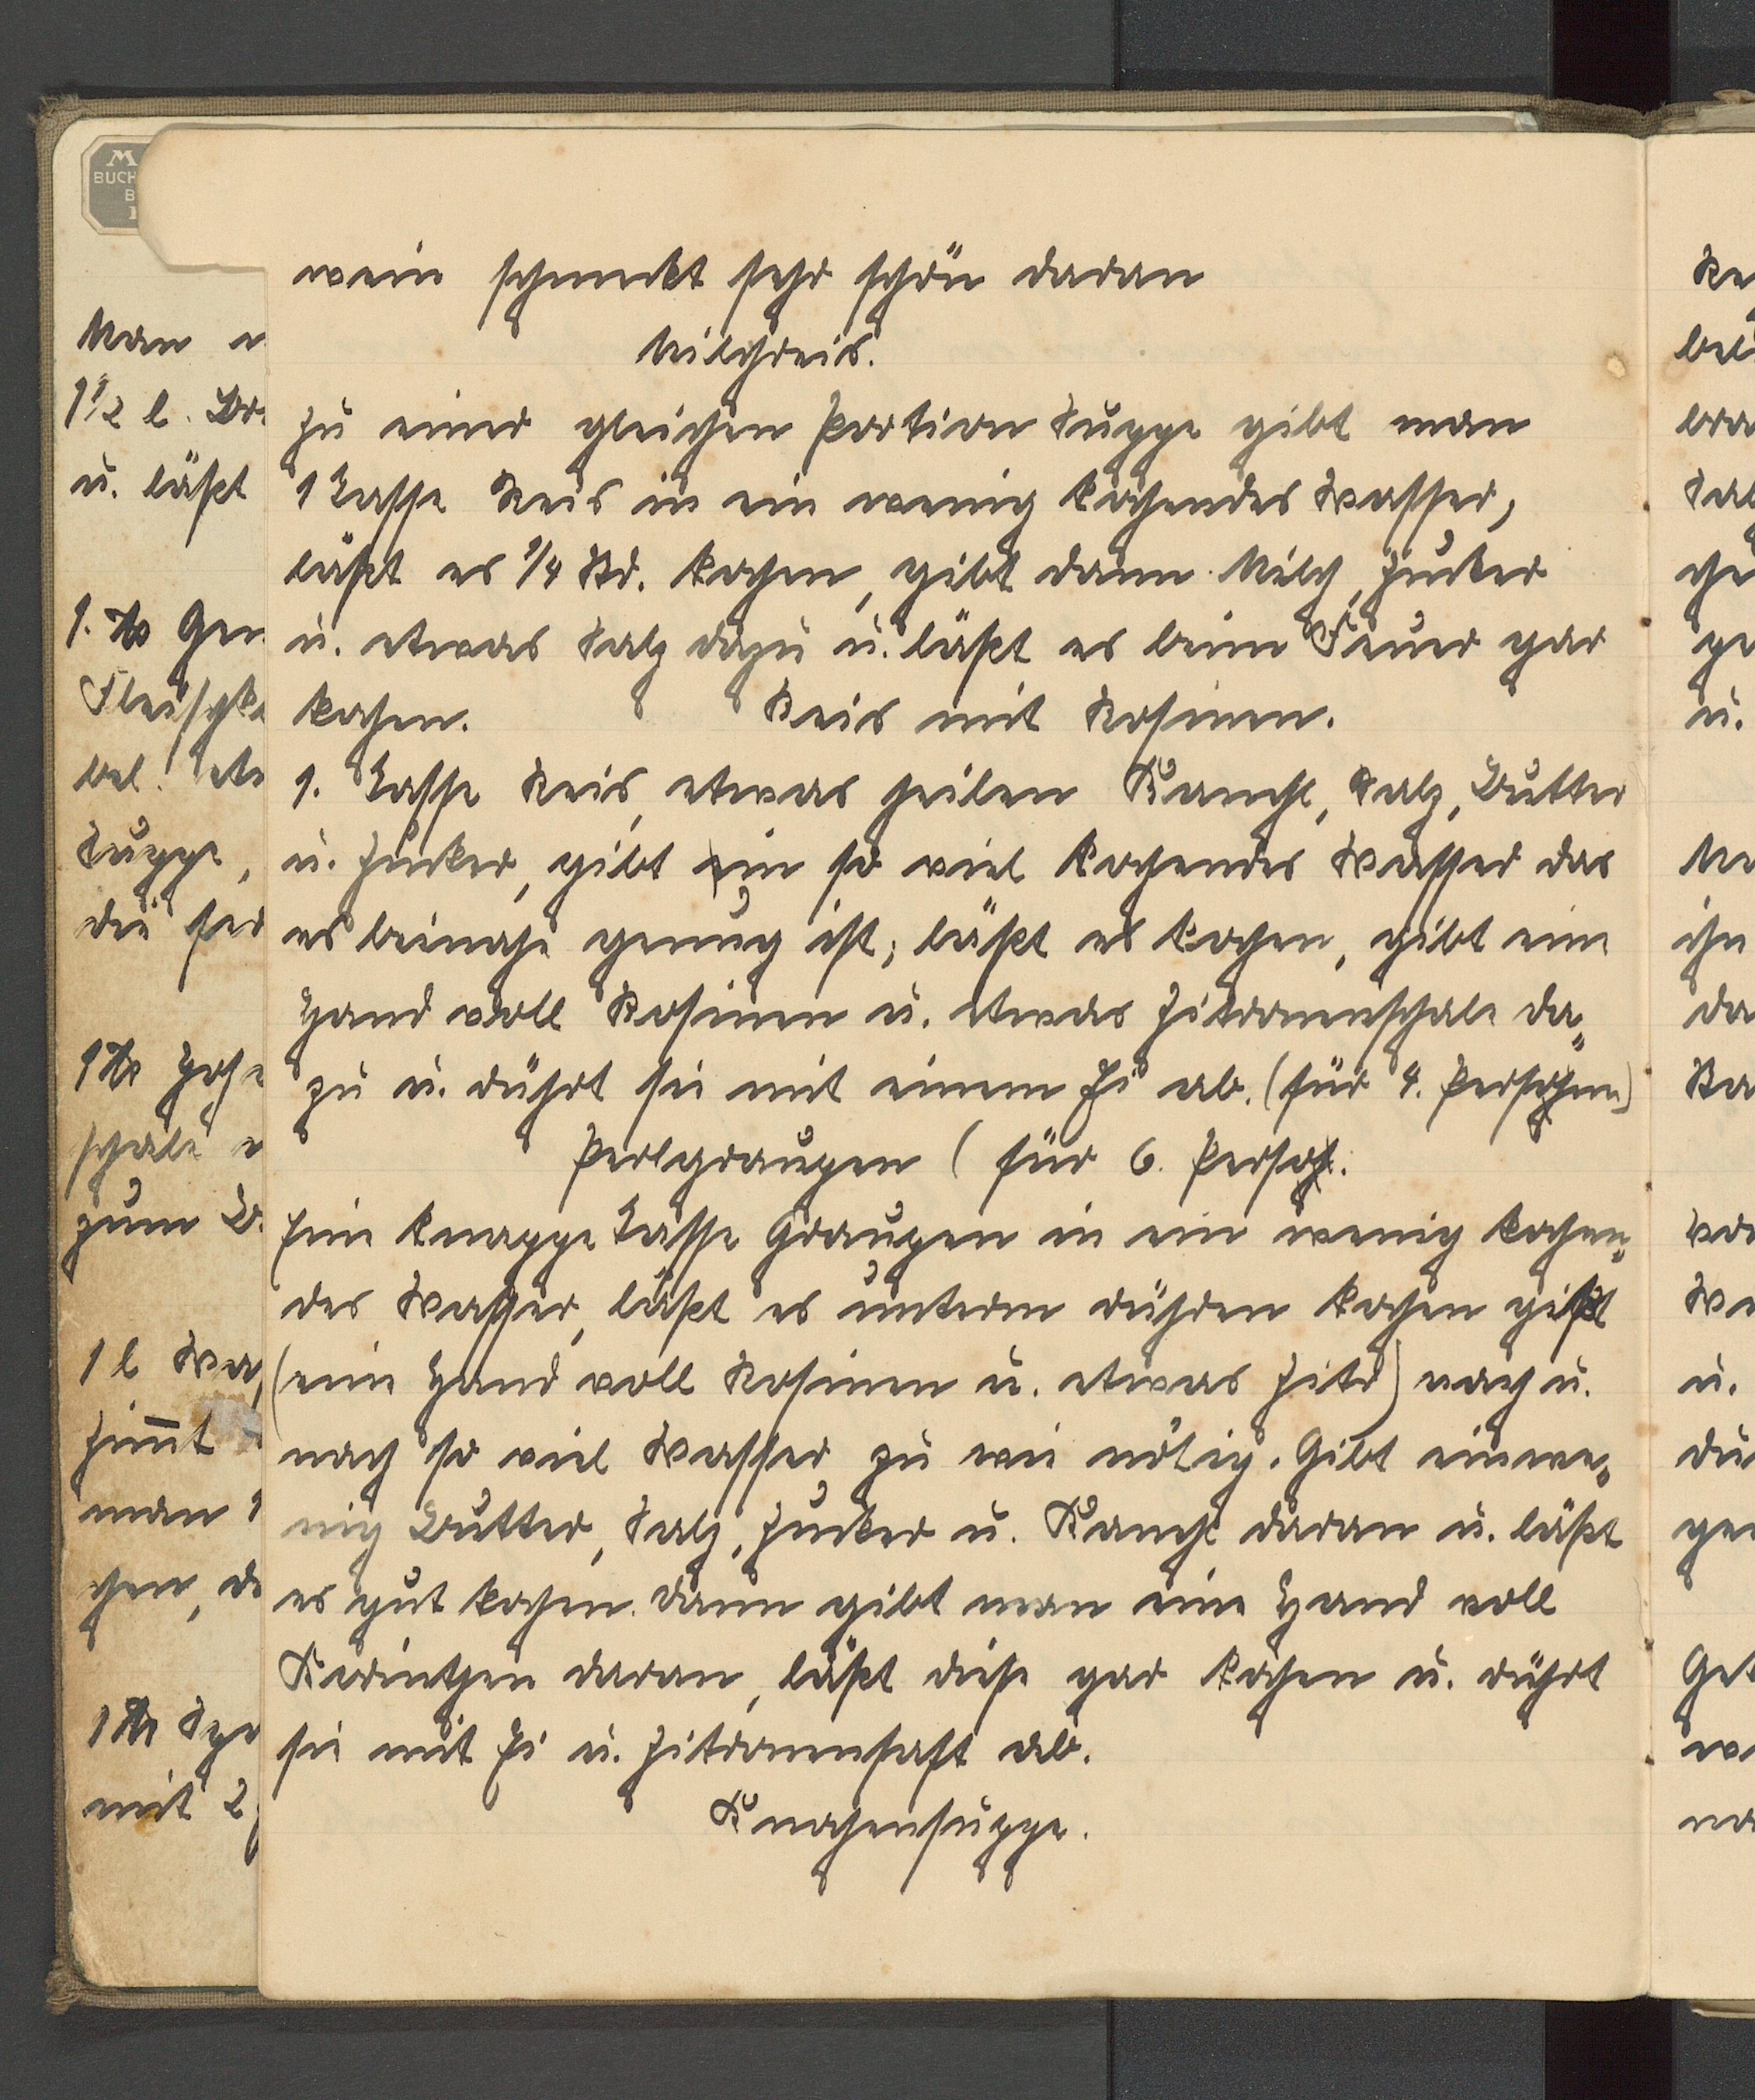 wein schmeckt sehr schön daran
Milchreis.
Zu einer gleichen Portion Suppe gibt man
1 Tasse Reis in ein wenig kochendes Wasser,
läßt es 1/4 Std. kochen, gibt dann Milch, Zucker
u. etwas Salz dazu u. läßt es beim Feuer gar
kochen. Reis mit Rosinen.
1. Tasse Reis, etwas heilen Kanehl, Salz, Butter
u. Zucker, gibt ein so viel kochendes Wasser das
es beinahe genug ist; läßt es kochen, gibt eine
Hand voll Rosinen u. etwas Zitronenschale da=
zu u. rührt sie mit einem Ei ab. (für 4. Persohnen)
Perlgraupen ( für 6. Persoh.
Eine knappe Tasse Graupen in ein wenig kochen=
des Wasser, läßt es unterm rühren kochen gißt
(eine Hand voll Rosinen u. etwas Zitr) nach u.
nach so viel Wasser zu wie nötig. Gibt ein we=
nig Butter, Salz, Zucker u. Kanehl daran u. läßt
es gut kochen. dann gibt man eine Hand voll
Korinthen daran, läßt diese gar kochen u. rührt
sie mit Ei u. Zitronensaft ab.
Knochensuppe.